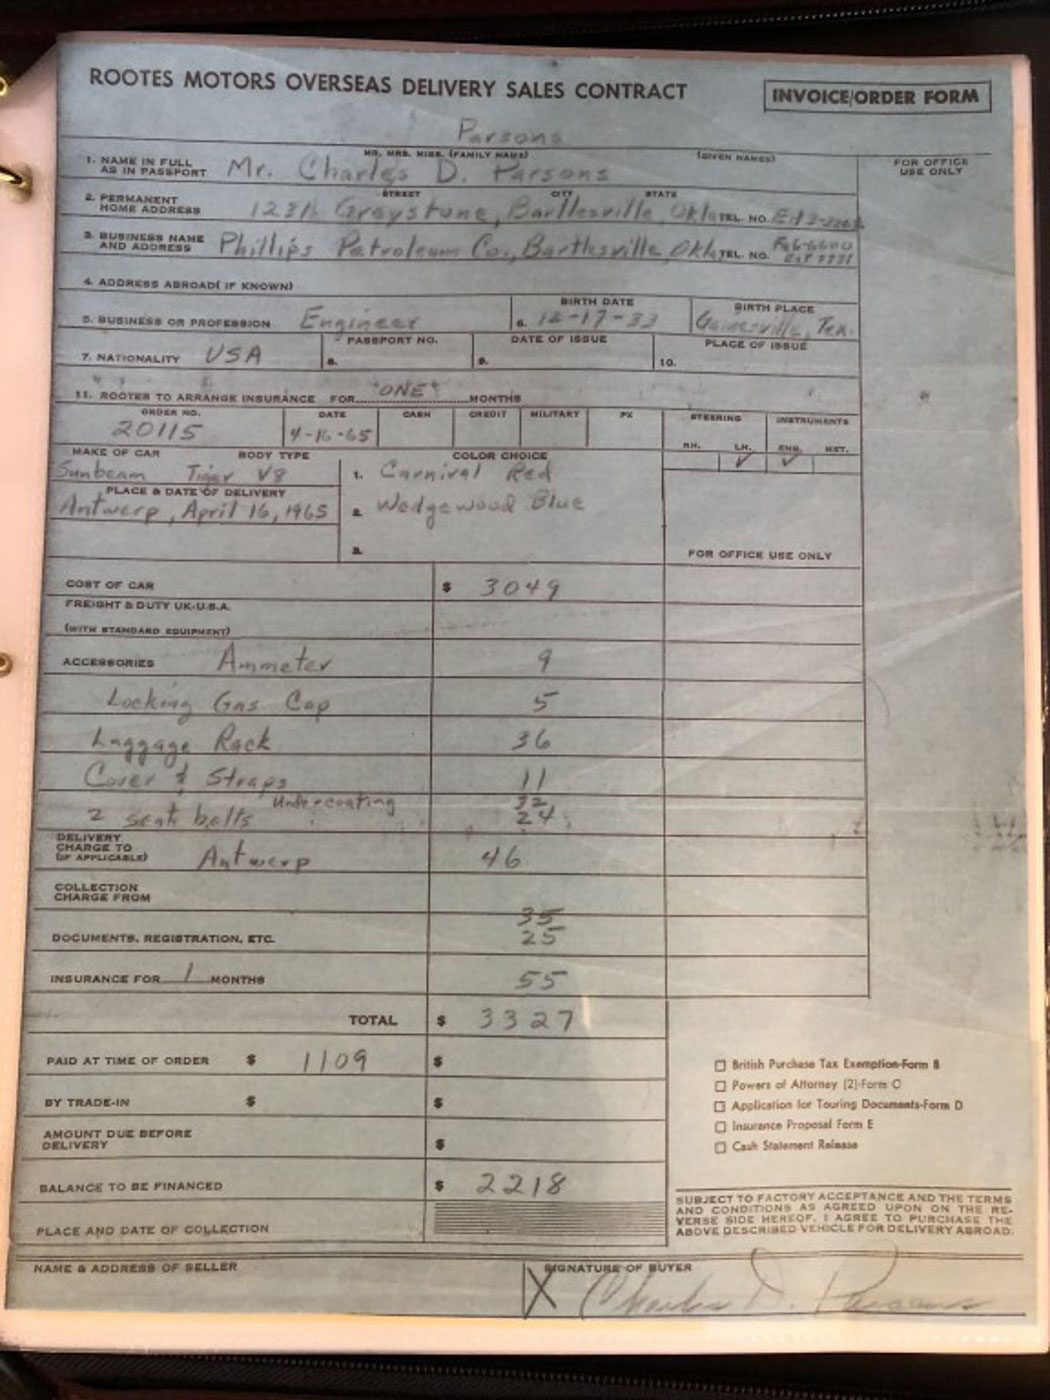 ROOTES MOTORS OVERSEAS DELIVERY SALES CONTRACT
INVOICE/ORDER FORM
Parsons
MR. MRS. MISS. (FAMILY NAME) (GIVEN NAMES)
FOR OFFICE USE ONLY
1. NAME IN FULL AS IN PASSPORT Mr. Charles D. Parsons
STREET CITY STATE
2. PERMANENT HOME ADDRESS Greystone, Bartlesville, Okla TEL. NO.
3. BUSINESS NAME AND ADDRESS Phillips Petroleum Co., Bartlesville, Okla TEL. NO.
4. ADDRESS ABROAD (IF KNOWN)
BIRTH DATE BIRTH PLACE
5. BUSINESS OR PROFESSION Engineer 6. 12-17-33 Gainesville, Tex.
PASSPORT NO. DATE OF ISSUE PLACE OF ISSUE
7. NATIONALITY USA 8. 9. 10.
11. ROOTES TO ARRANGE INSURANCE FOR "ONE" MONTHS
ORDER NO. DATE CASH CREDIT MILITARY PX STEERING INSTRUMENTS
20115 4-16-65 RH. LH. ENG. MET.
MAKE OF CAR BODY TYPE COLOR CHOICE ✓ ✓
Sunbeam Tiger V8 1. Carnival Red
PLACE & DATE OF DELIVERY
Antwerp, April 16, 1965 2. Wedgewood Blue
3.
FOR OFFICE USE ONLY
COST OF CAR $ 3049
FREIGHT & DUTY UK-U.S.A.
(WITH STANDARD EQUIPMENT)
ACCESSORIES Ammeter 9
Locking Gas Cap 5
Luggage Rack 36
Cover & Straps 11
Undercoating 32
2 seat belts 24
DELIVERY CHARGE TO (IF APPLICABLE) Antwerp 46
COLLECTION CHARGE FROM
35
DOCUMENTS, REGISTRATION, ETC. 25
INSURANCE FOR 1 MONTHS 55
TOTAL $ 3327
PAID AT TIME OF ORDER $ 1109 $
BY TRADE-IN $ $
AMOUNT DUE BEFORE DELIVERY $
BALANCE TO BE FINANCED $ 2218
PLACE AND DATE OF COLLECTION
British Purchase Tax Exemption-Form B
Powers of Attorney (2)-Form C
Application for Touring Documents-Form D
Insurance Proposal Form E
Cash Statement Release
SUBJECT TO FACTORY ACCEPTANCE AND THE TERMS
AND CONDITIONS AS AGREED UPON ON THE RE-
VERSE SIDE HEREOF, I AGREE TO PURCHASE THE
ABOVE DESCRIBED VEHICLE FOR DELIVERY ABROAD.
NAME & ADDRESS OF SELLER
SIGNATURE OF BUYER
X Charles D. Parsons